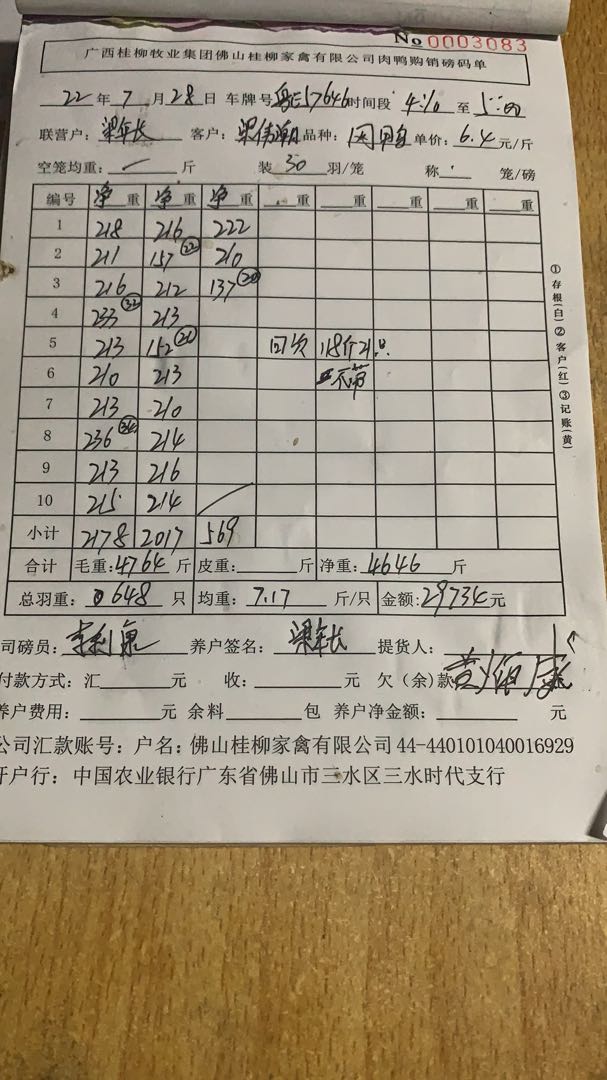 No 0003083
广西桂柳牧业集团佛山桂柳家禽有限公司肉鸭购销磅码单
22年7月28日 车牌号 57646 时间段 4:10 至 5:00
联营户：梁年长 客户：梁伟潮 品种： 单价：6.4元/斤
空笼均重：斤 装30羽/笼 称 笼/磅
编号 净重 净重 净重 重 重 重 重 重
1 218 216 222
2 211 157 (22) 210
3 216 212 137 (20)
4 233 (32) 213
5 213 152 (21) 回收 118斤21只
6 210 213 不节
7 213 210
8 236 (34) 214
9 213 216
10 215 214
小计 2178 2017 569
合计 毛重：4764斤 皮重：斤 净重：4646斤
总羽重：648只 均重：7.17斤/只 金额：29734元
司磅员： 养户签名：梁年长 提货人：
付款方式：汇 元 收： 元 欠（余）款
养户费用： 元 余料 包 养户净金额： 元
公司汇款账号：户名：佛山桂柳家禽有限公司 44-440101040016929
开户行：中国农业银行广东省佛山市三水区三水时代支行
①存根(白)②客户(红)③记账(黄)